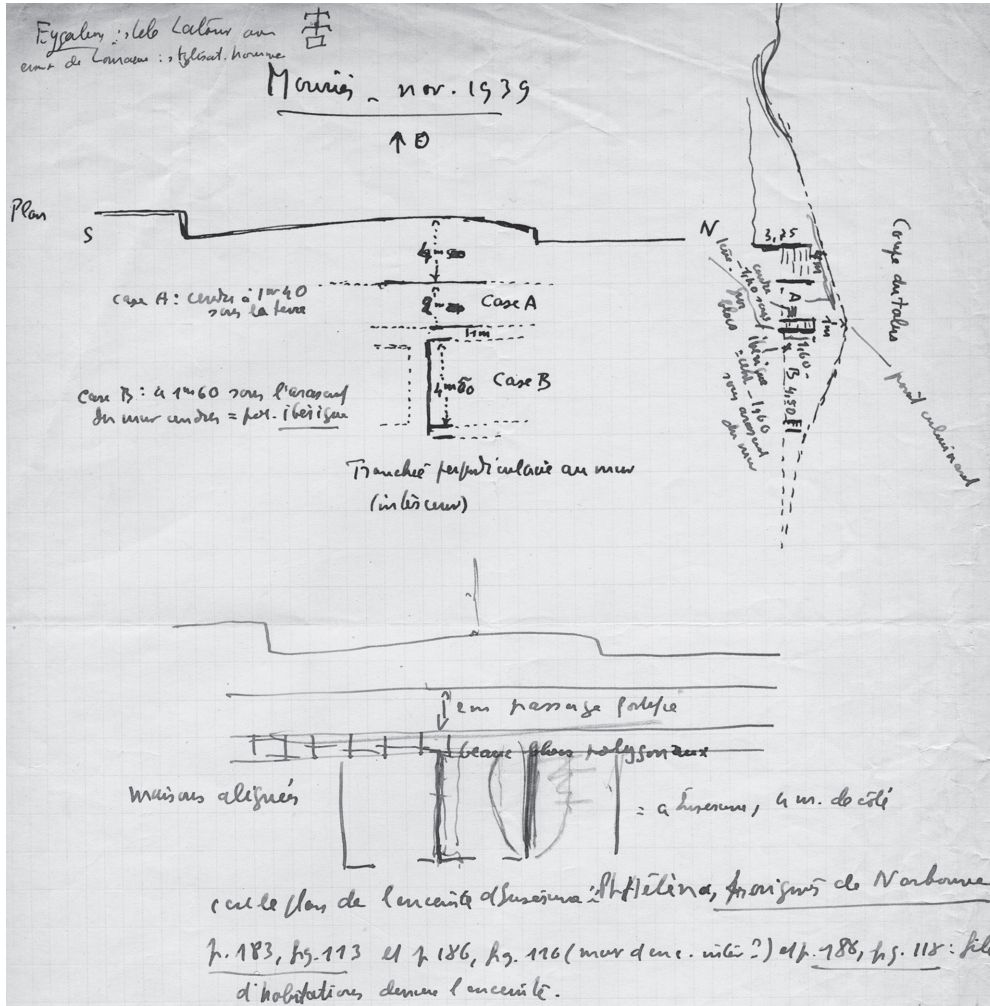 Eygalières : stèle Latour avec
croix de Lorraine : stylisat. homme
Mouriès - nov. 1939
↑ O
Plan
S
N
4m50
case A : cendres à 1m40
sous la terre
2m
Case A
1m
case B : à 1m60 sous l'arasement
du mur cendres = pot. ibérique
4m50
Case B
Tranchée perpendiculaire au mur
(intérieur)
3,25
4m
A
1m
1,60
B 4,50
Coupe du talus
point culminant
2m passage fortifié
beaux blocs polygonaux
maisons alignées
= à Ensérune, 4 m. de côté
le plan de l'enceinte d'Ensérune : Ph. Héléna, Les origines de Narbonne
p. 183, fig. 113 et p 186, fig. 116 (mur d'enc. intér ?) et p. 188, fig. 118 : file
d'habitations derrière l'enceinte.